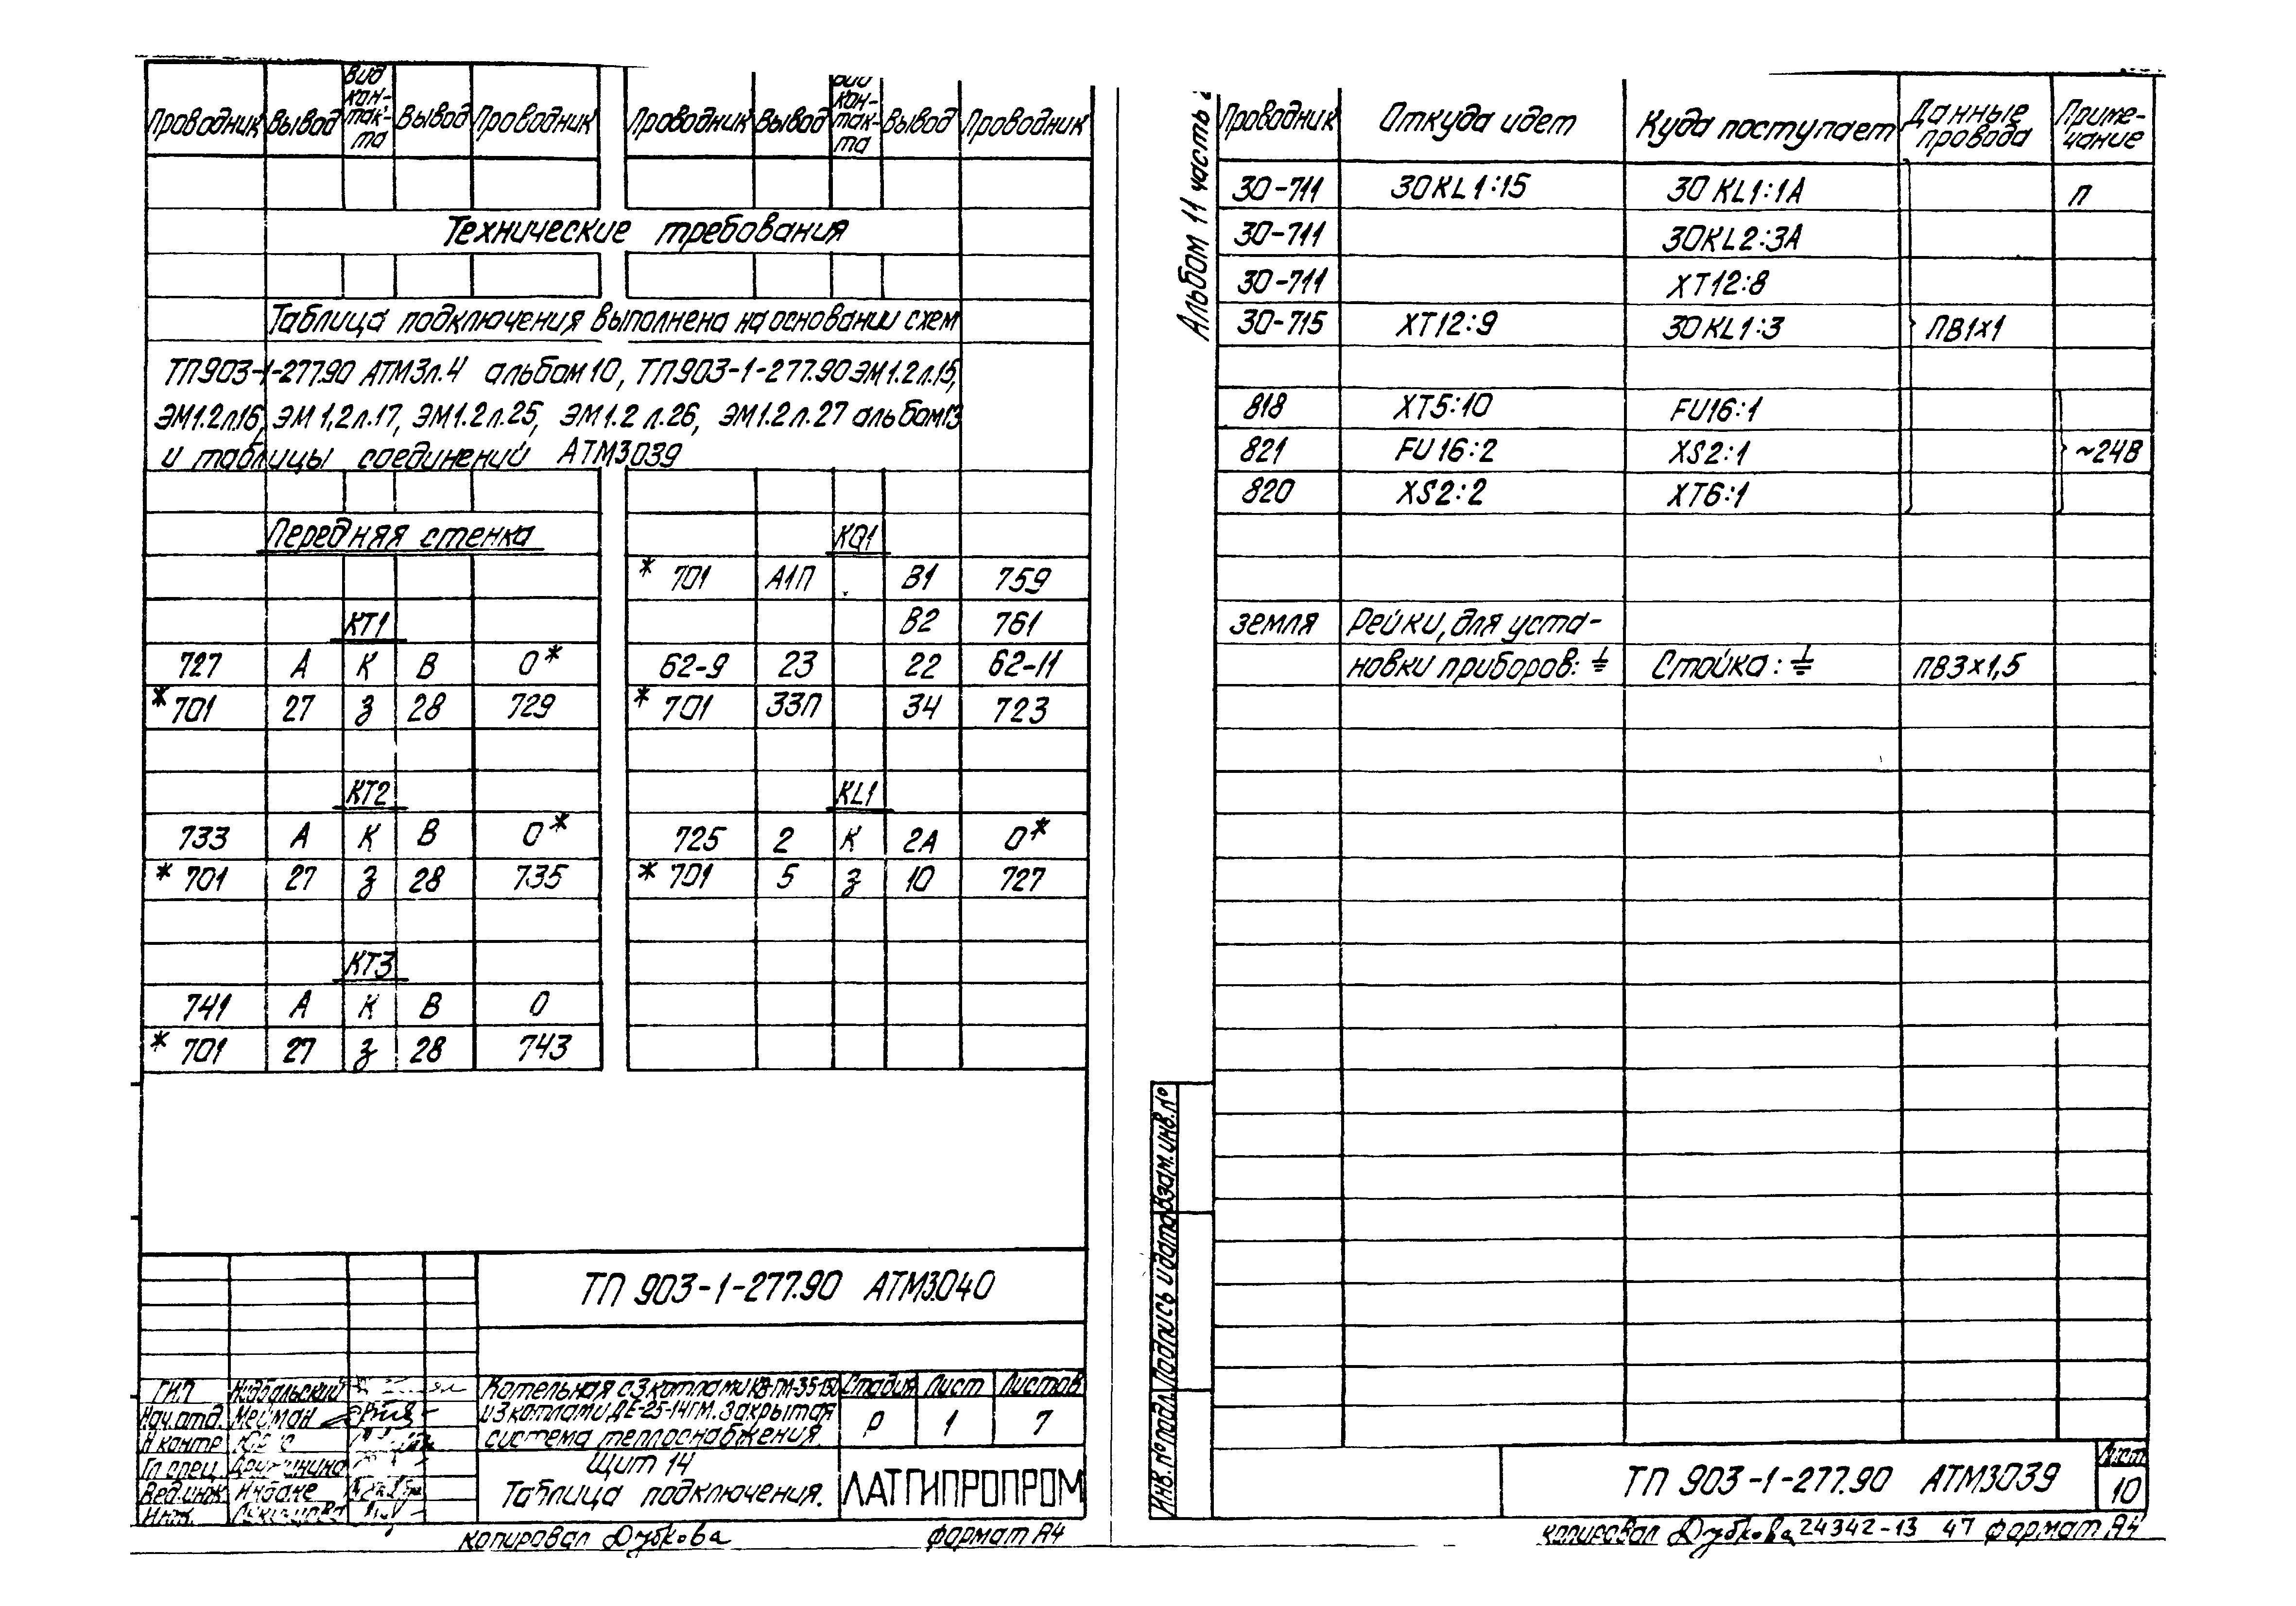 Проводник Вывод Вид кон-так-та Вывод Проводник Проводник Вывод Вид кон-так-та Вывод Проводник
Технические требования
Таблица подключения выполнена на основании схем
ТП903-1-277.90 АТМ3л.4 альбом 10, ТП903-1-277.90 ЭМ1.2л.15,
ЭМ1.2л.16, ЭМ1,2л.17, ЭМ1.2л.25, ЭМ1.2л.26, ЭМ1.2л.27 альбом 13
и таблицы соединений АТМ3039
Передняя стенка
КТ1
727 А К В 0*
*701 27 З 28 729
КТ2
733 А К В 0*
*701 27 З 28 735
КТ3
741 А К В 0
*701 27 З 28 743
KQ1
*701 А1П В1 759
В2 761
62-9 23 22 62-11
*701 33П 34 723
KL1
725 2 К 2А 0*
*701 5 З 10 727
ТП 903-1-277.90 АТМ3.040
ГИП
Нач.отд. Мейман
Н контр
Гл спец
Вед.инж.
Инж.
Котельная с 3 котлами КВ-ГМ-35-150
и 3 котлами ДЕ-25-14ГМ. Закрытая
система теплоснабжения.
Стадия Лист Листов
Р 1 7
Щит 14
Таблица подключения.
ЛАТГИПРОПРОМ
копировал Дубкова формат А4
Альбом 11 часть 2
Проводник Откуда идет Куда поступает Данные провода Приме-чание
30-711 30KL1:15 30KL1:1А П
30-711 30KL2:3А
30-711 ХТ12:8
30-715 ХТ12:9 30KL1:3 ПВ1х1
818 ХТ5:10 FU16:1
821 FU16:2 XS2:1 ~24В
820 XS2:2 ХТ6:1
земля Рейки, для уста-
новки приборов: ⏚ Стойка: ⏚ ПВ3х1,5
Инв.№подл. Подпись и дата Взам.инв.№
ТП 903-1-277.90 АТМ3039
Лист
10
копировал Дубкова 24342-13 47 формат А4